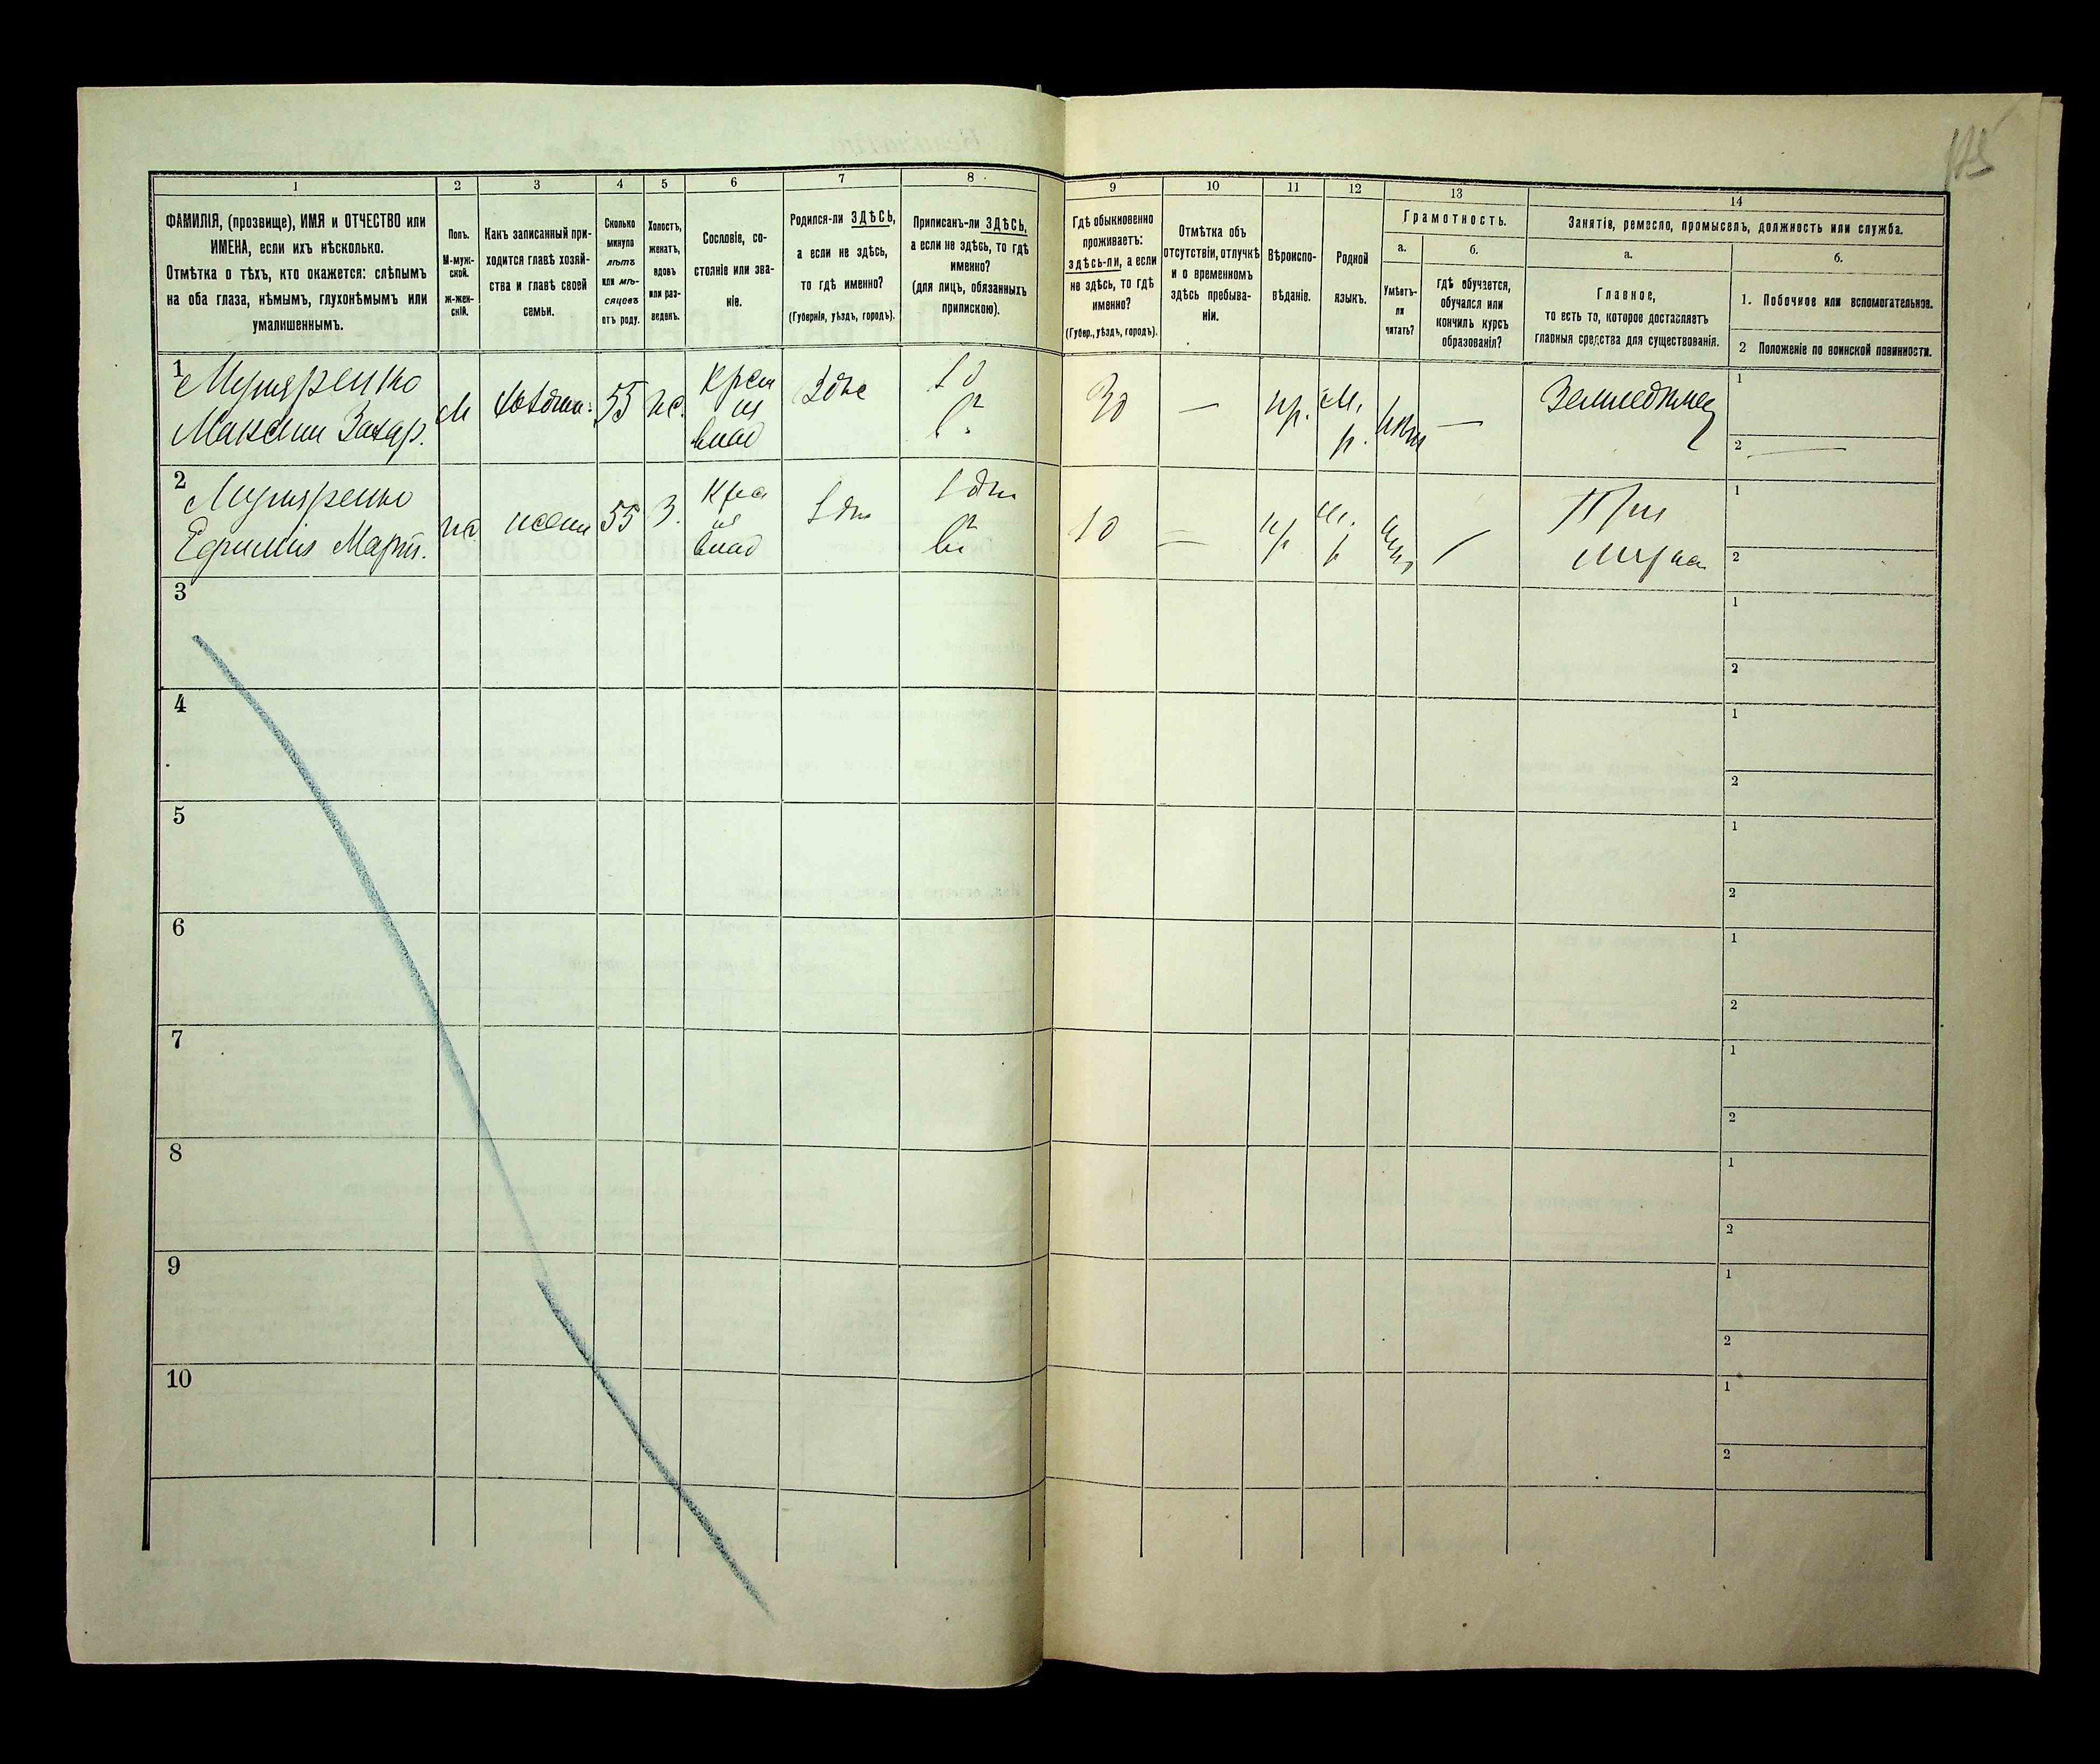 175
1
2
3
4
5
6
7
8
9
10
11
12
13
14
ФАМИЛІЯ, (прозвище), ИМЯ и ОТЧЕСТВО или
ИМЕНА, если ихъ нѣсколько.
Отмѣтка о тѣхъ, кто окажется: слѣпымъ
на оба глаза, нѣмымъ, глухонѣмымъ или
умалишеннымъ.
Полъ.
М-муж-
ской.
ж-жен-
скій.
Какъ записанный при-
ходится главѣ хозяй-
ства и главѣ своей
семьи.
Сколько
минуло
лѣтъ
или мѣ-
сяцевъ
отъ роду.
Холостъ,
женатъ,
вдовъ
или раз-
веденъ.
Сословіе, со-
стояніе или зва-
ніе.
Родился-ли ЗДѢСЬ,
а если не здѣсь,
то гдѣ именно?
(Губернія, уѣздъ, городъ).
Приписанъ-ли ЗДѢСЬ,
а если не здѣсь, то гдѣ
именно?
(для лицъ, обязанныхъ
припискою).
Гдѣ обыкновенно
проживаетъ:
здѣсь-ли, а если
не здѣсь, то гдѣ
именно?
(Губер., уѣздъ, городъ).
Отмѣтка объ
отсутствіи, отлучкѣ
и о временномъ
здѣсь пребыва-
ніи.
Вѣроиспо-
вѣданіе.
Родной
языкъ.
Грамотность.
а.
Умѣетъ-
ли
читать?
б.
гдѣ обучается,
обучался или
кончилъ курсъ
образованія?
Занятіе, ремесло, промыселъ, должность или служба.
а.
Главное,
то есть то, которое доставляетъ
главныя средства для существованія.
б.
1. Побочное или вспомогательное.
2 Положеніе по воинской повинности.
1
Максим Захар.
М
хозяин
55
же.
Крест
из
влад
Здѣс
Зд
—
пр.
М.
р.
нѣт
—
Земледѣлец
1
2
2
Ефимія Март.
жена
55
З.
Кре
из
влад
—
пр
М.
р
При
мужѣ
1
2
3
1
2
4
1
2
5
1
2
6
1
2
7
1
2
8
1
2
9
1
2
10
1
2